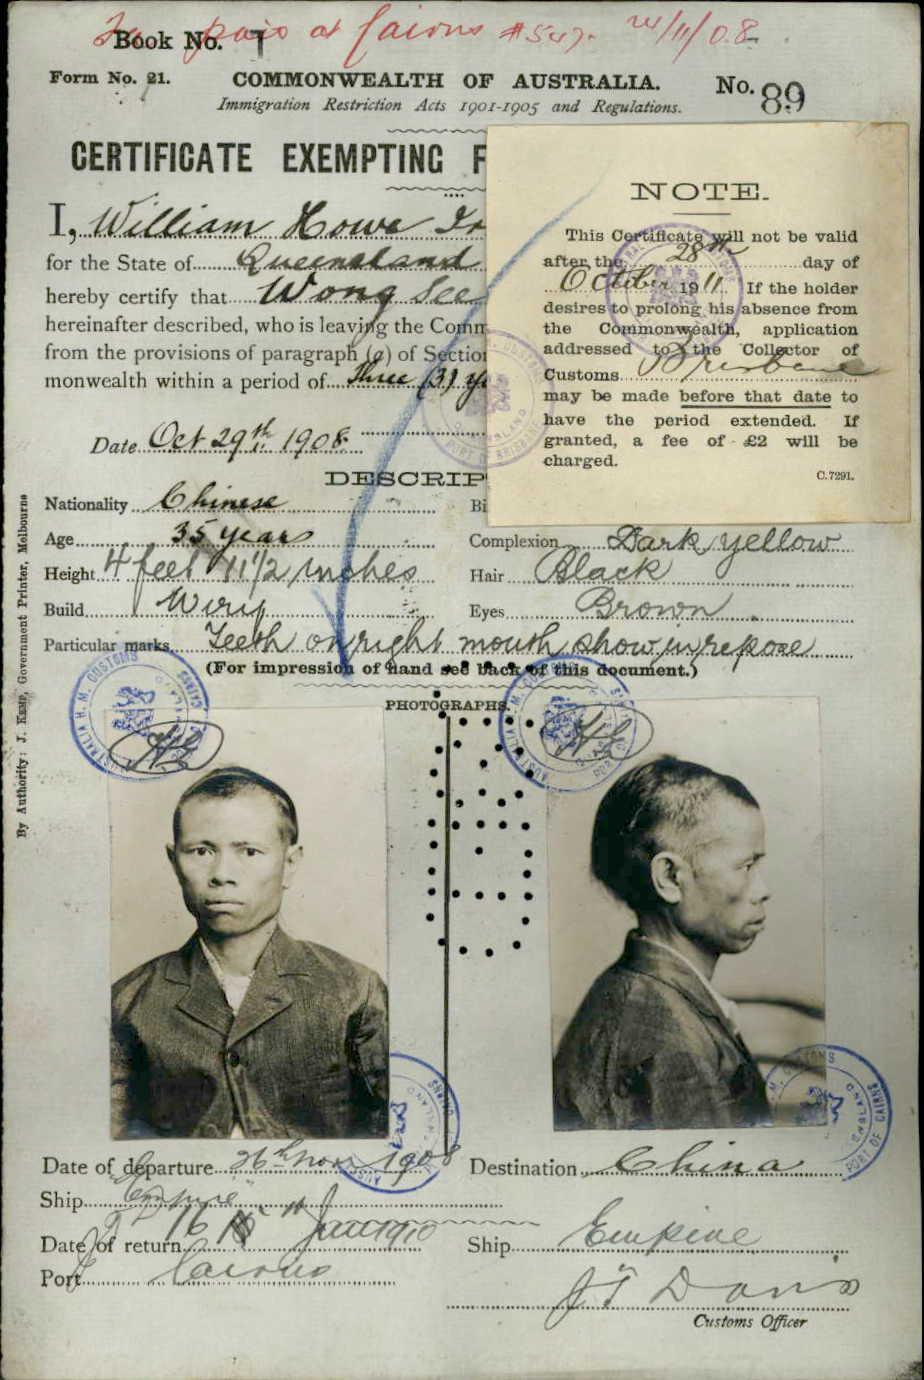 paid at Cairns #547. 24/11/08
Book No. 1
Form No. 21.
COMMONWEALTH OF AUSTRALIA.
No. 89
Immigration Restriction Acts 1901-1905 and Regulations.
CERTIFICATE EXEMPTING F
I, William Howe Ir
for the State of Queensland
hereby certify that Wong See
hereinafter described, who is leaving the Comm
from the provisions of paragraph (a) of Section
monwealth within a period of Three (3) ye
Date Oct 29th 1908.
NOTE.
This Certificate will not be valid
after the 28th day of
October 1911 If the holder
desires to prolong his absence from
the Commonwealth, application
addressed to the Collector of
Customs Brisbane
may be made before that date to
have the period extended. If
granted, a fee of £2 will be
charged.
C.7291.
DESCRIP
Nationality Chinese
Bi
Age 35 years
Complexion Dark yellow
Height 4 feet 11 1/2 inches
Hair Black
Build Wiry
Eyes Brown
Particular marks Teeth on right mouth show in repose
(For impression of hand see back of this document.)
PHOTOGRAPHS.
By Authority: J. KEMP, Government Printer, Melbourne
H. M. CUSTOMS
AUSTRALIA
CAIRNS
PORT OF
Date of departure 26th Nov 1908
Destination China
Ship "Empire"
Date of return 16 Jan 1910
Ship Empire
Port Cairns
J T Davis
Customs Officer